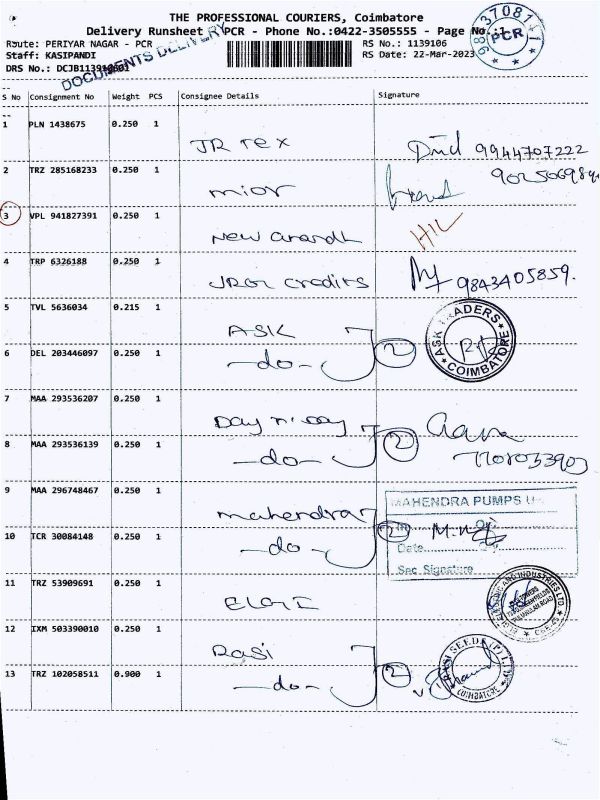 THE PROFESSIONAL COURIERS, Coimbatore
Delivery Runsheet PCR - Phone No.:0422-3505555 - Page No.:1
Route: PERIYAR NAGAR - PCR
RS No.: 1139106
Staff: KASIPANDI
RS Date: 22-Mar-2023
DRS No.: DCJB1139
DOCUMENTS DELIVERY
PCR
S No Consignment No Weight PCS Consignee Details Signature
1 PLN 1438675 0.250 1
JR Tex 9944707222
2 TRZ 285168233 0.250 1
mior
3 VPL 941827391 0.250 1
New anandh H/L
4 TRP 6326188 0.250 1
credits 9843405859.
5 TVL 5636034 0.215 1
ASK
ASK TRADERS
COIMBATORE
6 DEL 203446097 0.250 1
-do- 2
7 MAA 293536207 0.250 1
Day n' day
8 MAA 293536139 0.250 1
-do- 2
9 MAA 296748467 0.250 1
mahendra
MAHENDRA PUMPS
10 TCR 30084148 0.250 1
-do- 2
Date
Sec. Signature
11 TRZ 53909691 0.250 1
ELGI
12 IXM 503390010 0.250 1
Rasi
RASI SEEDS (P) LTD
COIMBATORE
13 TRZ 102058511 0.900 1
-do- 2